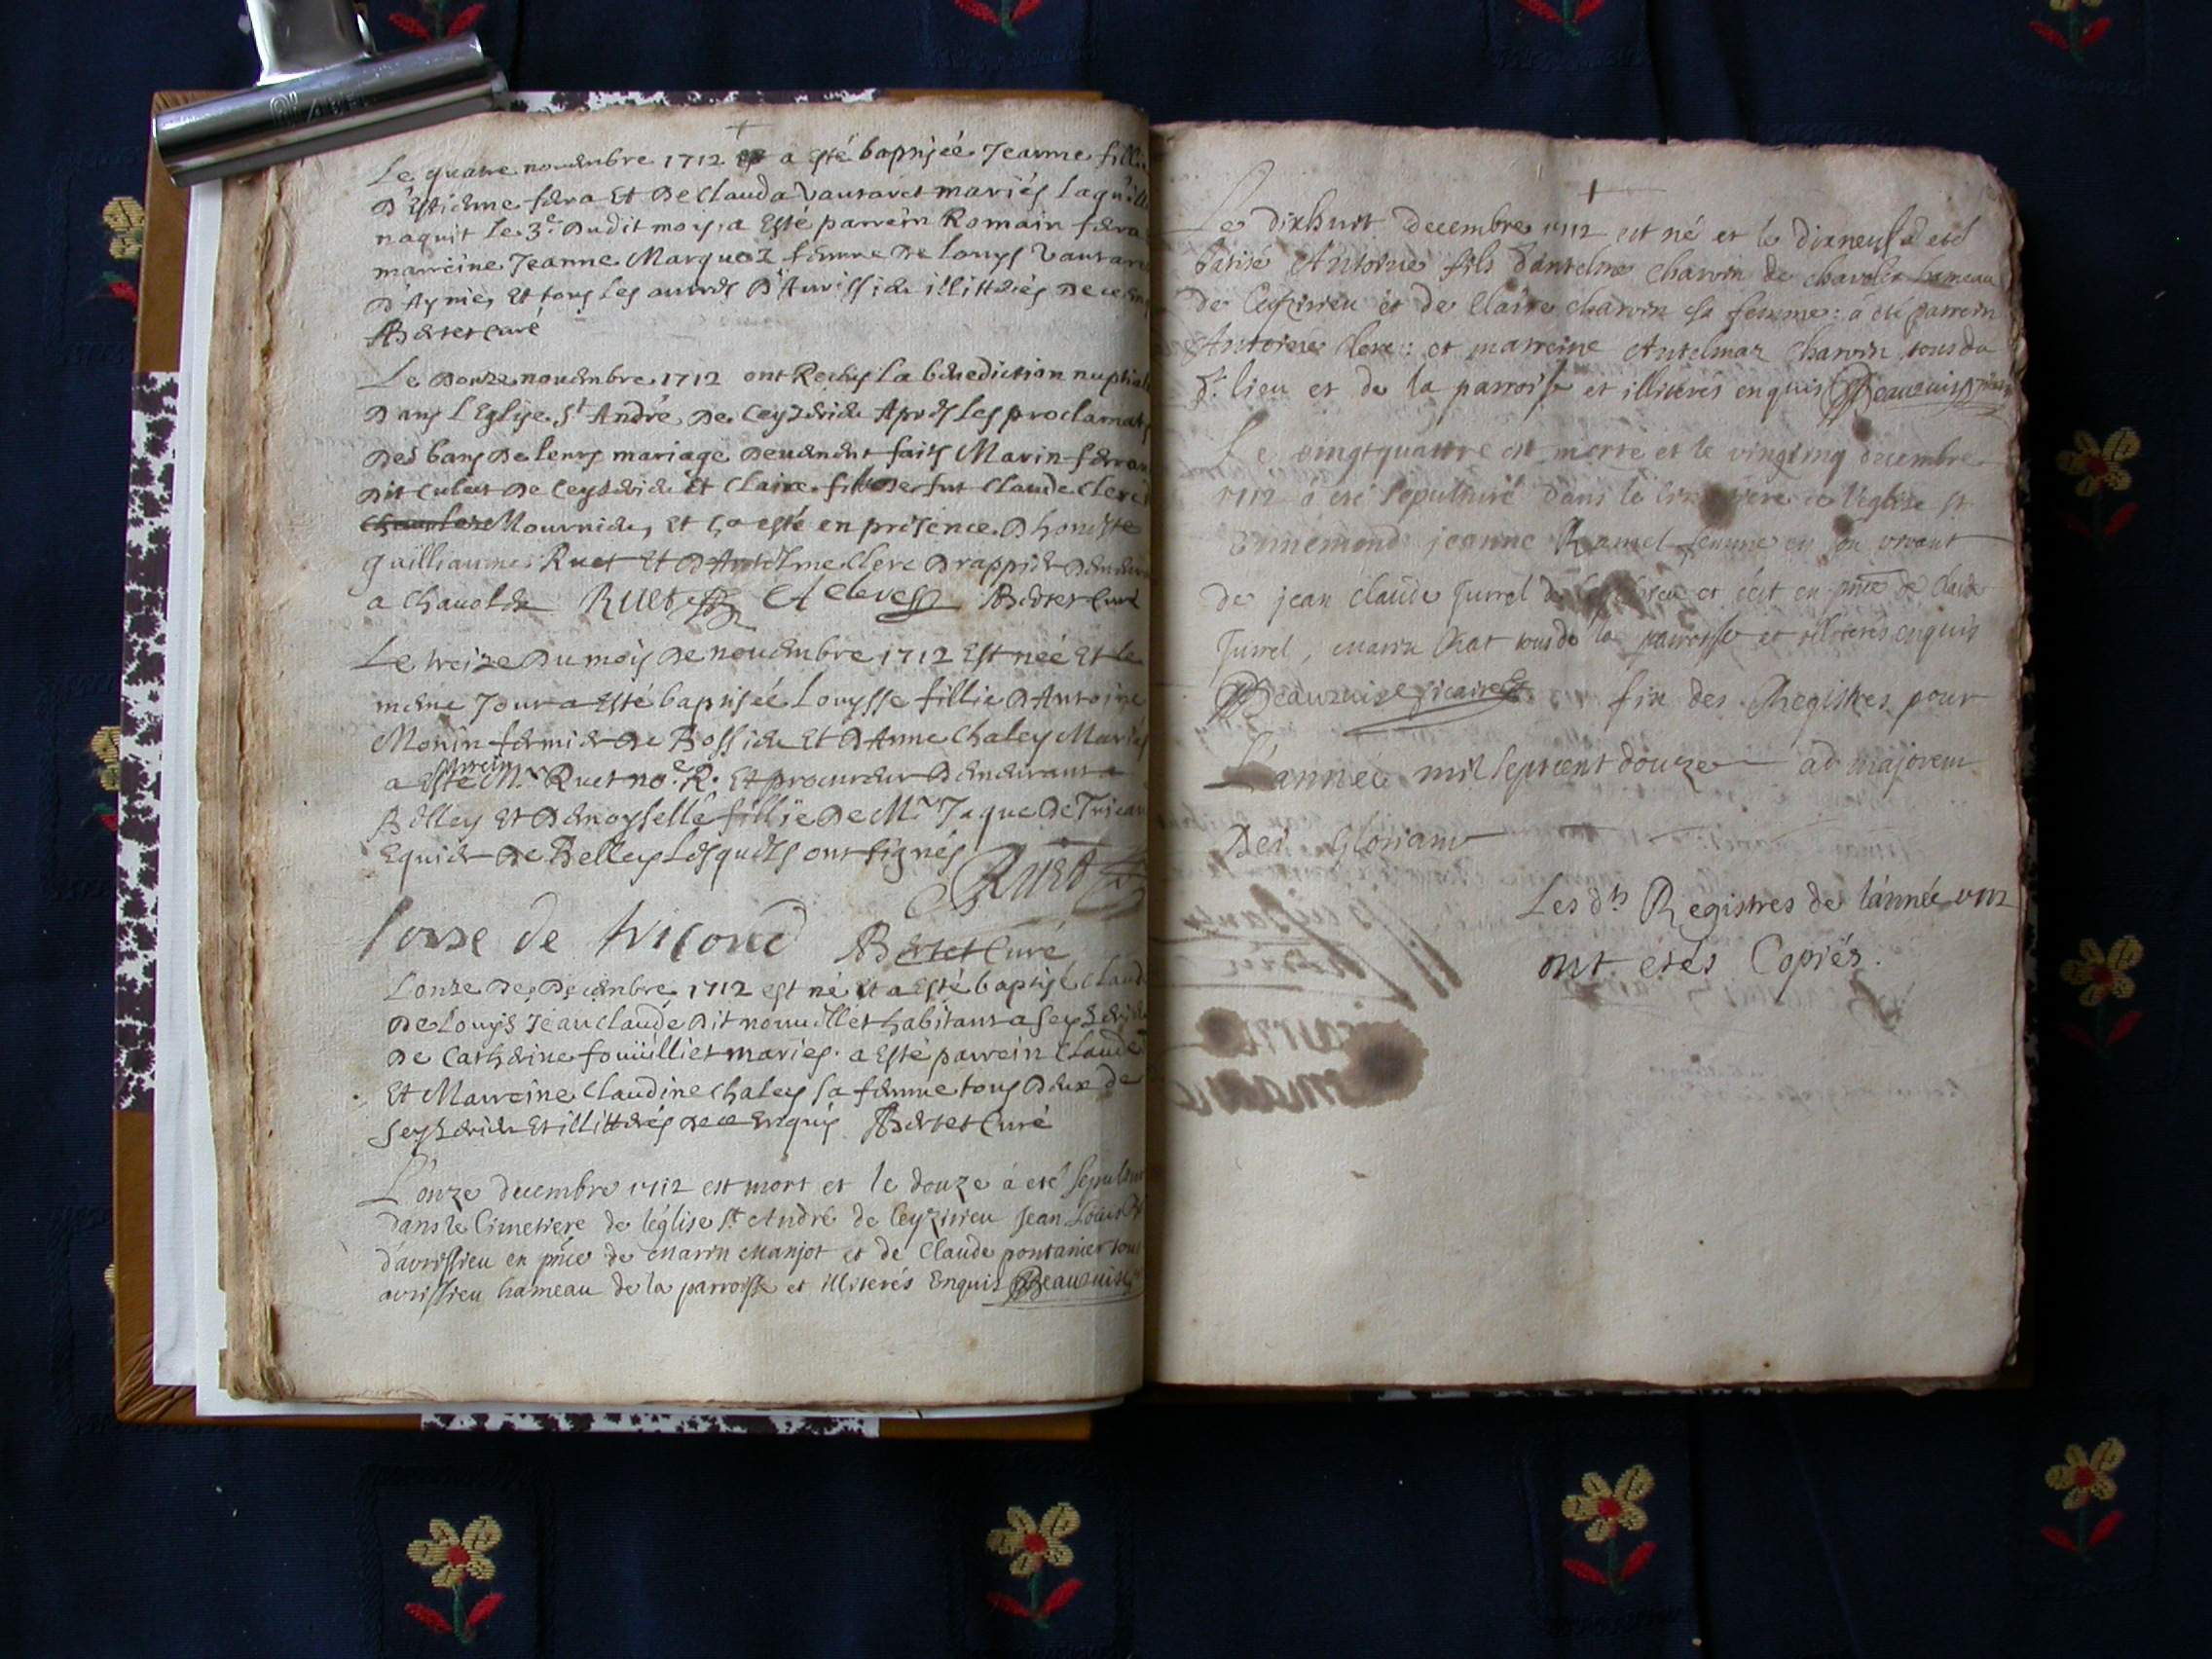 Le quatre nouembre 1712 a esté baptisée Jeanne fill
d'Estienne fera et de Clauda Vautaret mariés laquelle
naquit le 3e dudit mois, a esté parrein Romain fera
marreine Jeanne Marquez femme de Louys Vautaret
d'Agnie, et tous les autres d'Auissieu illitterés de ce
Bertet Curé
Le douze nouembre 1712 ont Receus la benediction nuptial
dans l'Eglise St André de Ceyzerieu Apres les proclamat
des bans de leurs mariage deuement faits Marin ferra
dit Culet de Ceyzerieu et Claire fille de fut Claude Clerc
Mournieu, et ç'a esté en présence d'honeste
guilliaume Ruet et d'Antelme Clerc drappier
a Chauolez Ruet A Clerc Bertet Curé
Le treize du mois de nouembre 1712 est née et le
meme jour a esté baptisée Louysse fillie d'Antoine
Monin fermier de Bossieu et d'Anne Chaley Mariés
parrein
a esté Mr Ruet nore R. et procureur demeurant a
Belley et demoyselle fillie de Mr Jaque de Tricau
Equier de Belley lesquels ont signés
Ruet
loise de tricoud Bertet Curé
L'onze de decembre 1712 est né et a esté baptisé Claud
de Louys Jean Claude dit nouuellet habitant a Seyzerieu
de Catherine fouüilliet mariés. a esté parrein Claude
Et Marreine Claudine Chaley sa femme tous deux de
Seyzerieu et illitterés de ce enquis Bertet Curé
L'onze decembre 1712 est mort et le douze à eté sepultur
dans le Cimetiere de l'église St André de Ceyzirieu Jean Louis
d'avrissieu en pnce de Marin Manjot et de Claude pontanier tous
avrissieu hameau de la parroisse et illiterés Enquis Beauzuise
Le dixhuit decembre 1712 est né et le dixneuf a eté
batisé Antoine fils d'antelme Charvin de chavolex hameau
de Ceyzirieu et de Claire charvin sa femme: à été parrein
Antoine Clerc: et marreine Antelmaz Charvin tous du
dt lieu et de la parroisse et illiterés enquis Beauzuise
Le vingtquattre est morte et le vingtcinq decembre
1712 à eté sepulturé dans le Cimetiere de l'eglise St
Ennemond jeanne Ramel femme en son vivant
de jean claude Jurrel de et c'est en pnce de Claude
Jurrel, marin Chat tous de la parroisse et illiterés enquis
Beauzuise vicaire fin des Registres pour
L'année mil septcent douze ad majorem
Dei Gloriam
Les dts Registres de l'année 1712
ont etés Copiés.